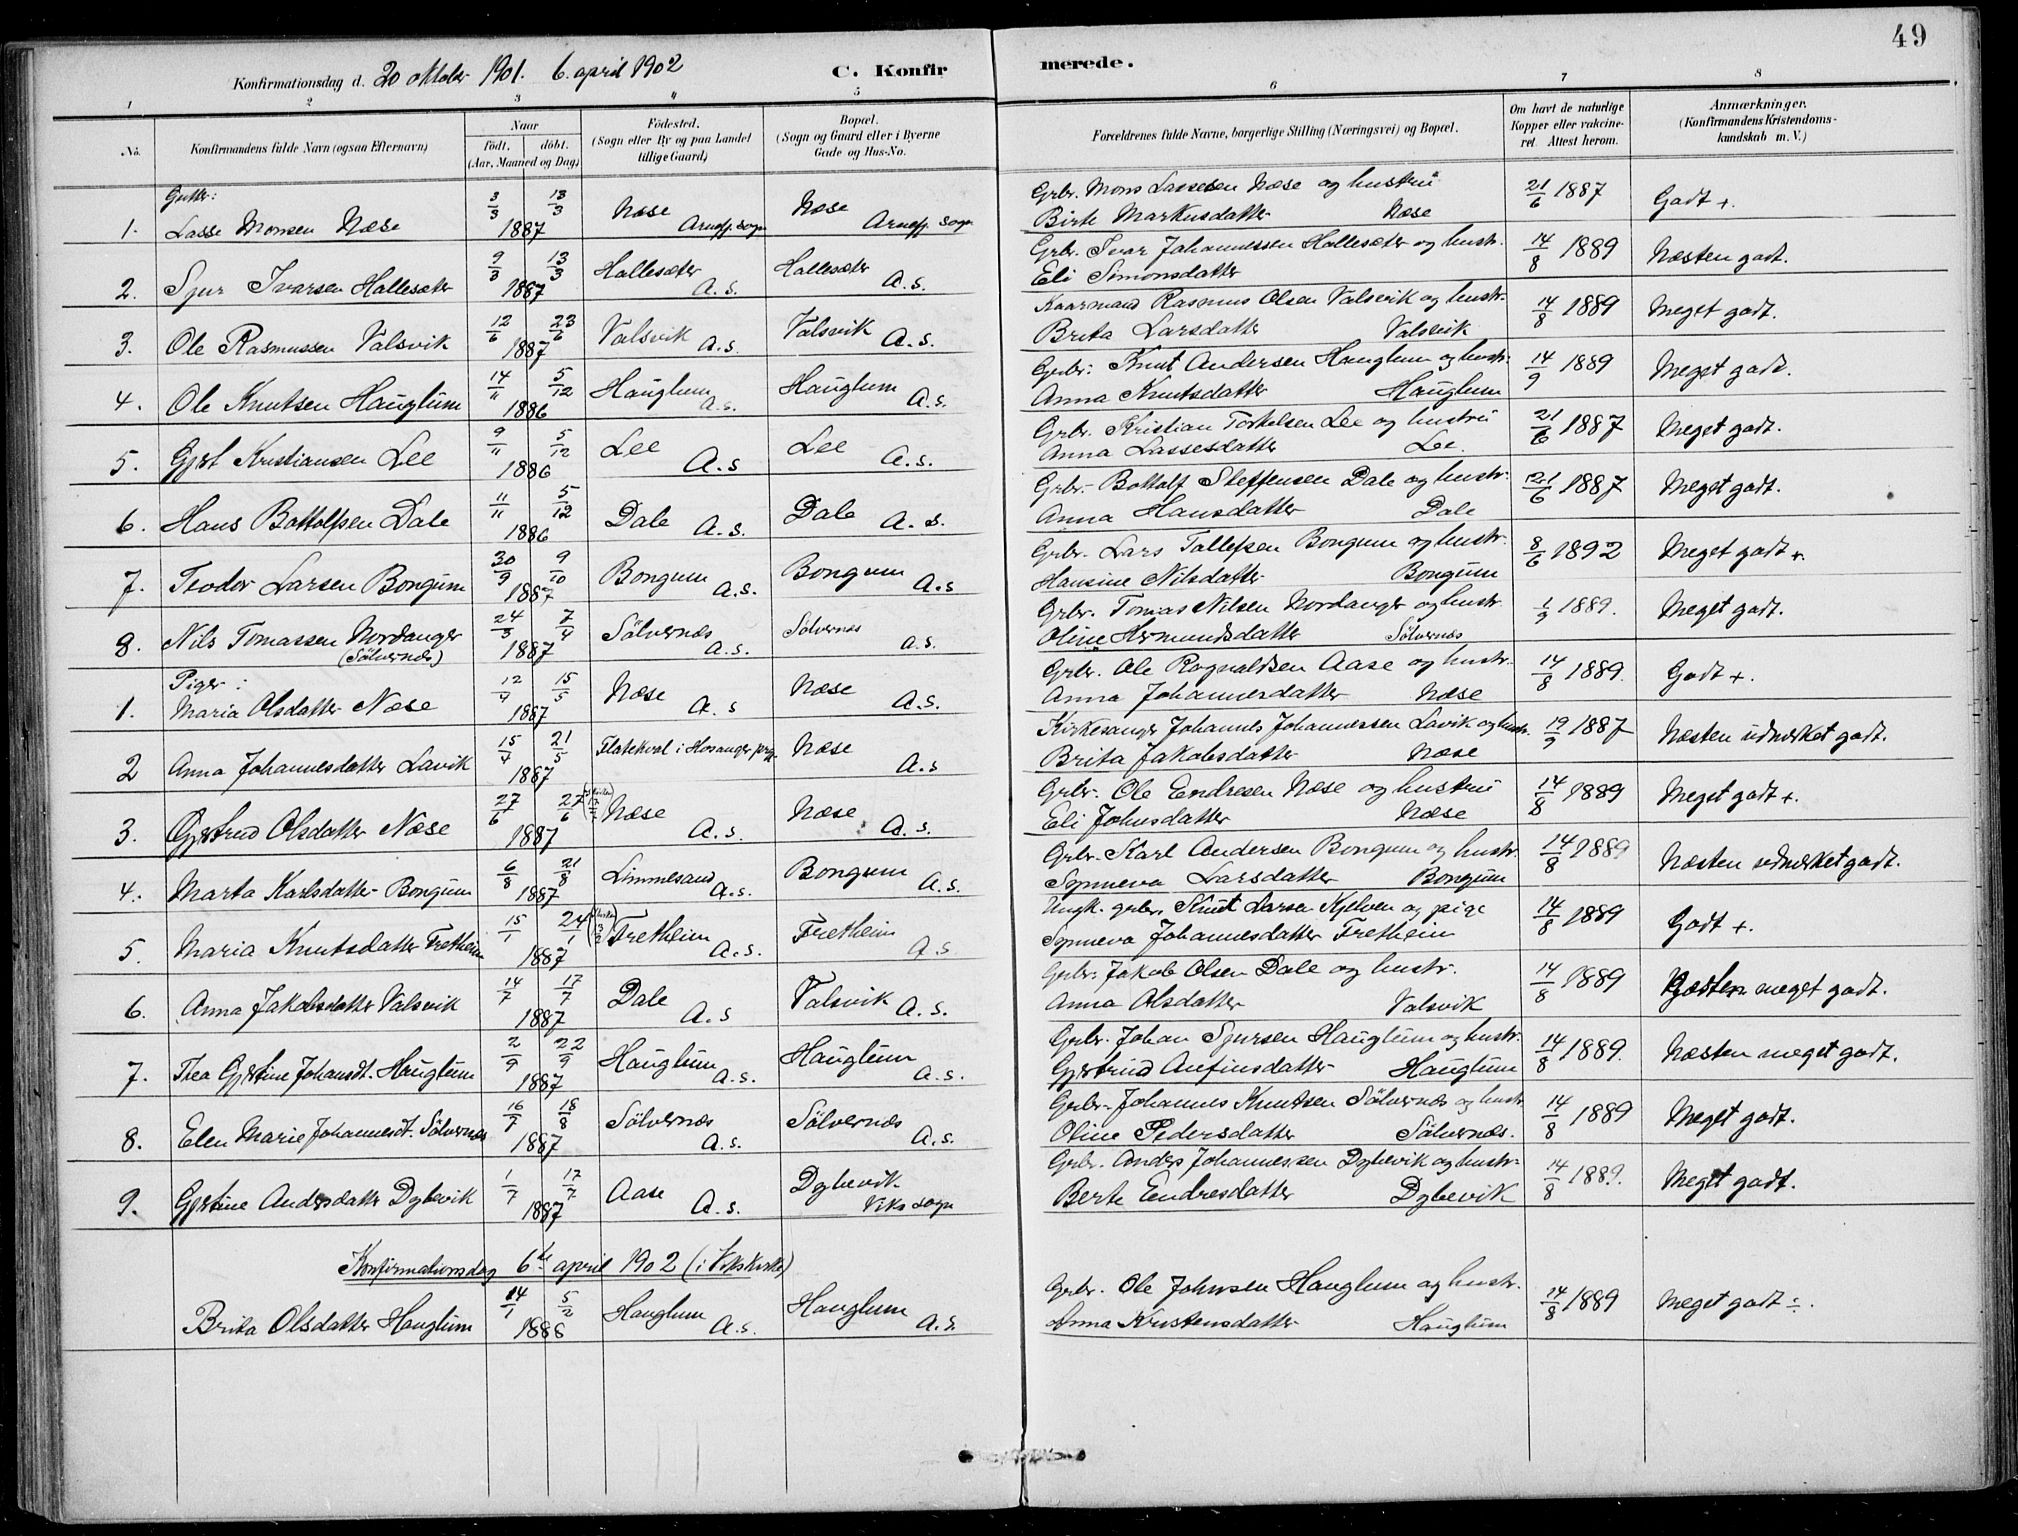 49
Konfirmationsdag d. 20 oktober 1901. 6. april 1902 C. Konfirmerede.
1 2 3 4 5 6 7 8
No. Konfirmandens fulde Navn (ogsaa Efternavn) Naar født. døbt. (Aar, Maaned og Dag) Födested. (Sogn eller By og paa Landet tillige Gaard) Bopæl. (Sogn og Gaard eller i Byerne Gade og Hus-No. Forældrenes fulde Navne, borgerlige Stilling (Næringsvei) og Bopæl. Om havt de naturlige Kopper eller vakcineret. Attest herom. Anmærkninger. (Konfirmandens Kristendomskundskab m. V.)
Gutter:
1. Lasse Monsen Næse 3/3 13/3 1887 Næse Arnefj. sogn Næse Arnefj. sogn Grbr. Mons Lassesen Næse og hustru Birte Markusdatter Næse 21/6 1887 Godt +.
2. Sjur Ivarsen Hallesæter 9/3 13/3 1887 Hallesæter A.S. Hallesæter A.S. Grbr. Ivar Johannessen Hallesæter og hustr. Eli Simonsdatter 14/8 1889 Næsten godt.
3. Ole Rasmussen Valsvik 12/6 23/6 1887 Valsvik A.S. Valsvik A.S. Kaarmand Rasmus Olsen Valsvik og hustr. Brita Larsdatter Valsvik 14/8 1889 Meget godt.
4. Ole Knutsen Hauglum 14/11 5/12 1886 Hauglum A.S. Hauglum A.S. Grbr. Knut Andersen Hauglum og hustr. Anna Knutsdatter Hauglum 14/9 1889 Meget godt.
5. Gjert Kristiansen Lee 9/11 5/12 1886 Lee A.S Lee A.S. Grbr. Kristian Torkelsen Lee og hustru Anna Lassesdatter Lee. 21/6 1887 Meget godt.
6. Hans Bottolfsen Dale 11/11 5/12 1886 Dale A.S. Dale A.S. Grbr. Bottolf Steffensen Dale og hustr. Anna Hansdatter Dale 21/6 1887 Meget godt.
7. Teodor Larsen Bongum 30/9 9/10 1887 Bongum A.S. Bongum A.S Grbr. Lars Tollefsen Bongum og hustr. Hansine Nilsdatter Bongum 8/6 1892 Meget godt +.
8. Nils Tomassen Nordanger (Sölvernæs) 24/3 7/4 1887 Sölvernæs A.S. Solvernæs A.S. Grbr. Tomas Nilsen Nordanger og hustr Oline Hermundsdatter Sölvernæs 1889. Meget godt.
Piger:
1. Maria Olsdatter Næse 12/4 15/5 1887 Næse A.S Næse A.S. Grbr. Ole Rognaldsen Aase og hustr. Anna Johannesdatter Næse 14/8 1889. Godt +.
2 Anna Johannesdatter Lavik 15/4 21/5 1887 Flatekval i Hosanger prg. Næse A.S Kirkesanger Johannes Johannessen Lavik og hustr. Brita Jakobsdatter Næse 19/9 1887 Næsten udmerket godt.
3. Gjertrud Olsdatter Næse 27/6 27/6 1887 Næse A.S. Næse A.S. Grbr. Ole Endresen Næse og hustru Eli Johnsdatter Næse 14/8 1889 Meget godt +.
4. Marta Karlsdatter Bongum 6/8 21/8 1887 Limmesand A.S. Bongum A.S. Grbr. Karl Andersen Bongum og hustr. Synneva Larsdatter Bongum 14/8 1889 Næsten udmerket godt.
5. Maria Knutsdatter Fretheim 15/1 24/1 1887 Fretheim A.S. Fretheim A.S Ungk. grbr. Knut Larsen Kjelven og pige Synneva Johannesdatter Fretheim 14/8 1889 Godt +.
6. Anna Jakobsdatter Valsvik 14/7 17/7 1887 Dale A.S Valsvik A.S. Grbr. Jakob Olsen Dale og hustr. Anna Olsdatter Valsvik 14/8 1889 Næsten meget godt.
7. Thea Gjertine Johansdt. Hauglum 2/9 22/9 1887 Hauglum A.S. Hauglum A.S. Grbr. Johan Sjursen Hauglum og hustr. Gjertrud Anfinsdatter Hauglum 14/8 1889. Næsten meget godt.
8. Elen Marie Johannesdt. Sölvernæs 16/7 18/8 1887 Sölvernæs A.S. Sölvernæs A.S. Grbr. Johannes Knutsen Sölvernæs og hustr Oline Pedersdatter Sölvernæs. 14/8 1889 Meget godt.
9. Gjertine Andersdatter Dybevik 1/7 17/7 1887 Aase A.S. Dybevik Viks sogn Grbr. Anders Johannessen Dybevik og hustr. Berte Endresdatter Dybevik 14/8 1889. Meget godt.
Konfirmationsdag 6te april 1902 (i Viks kirke)
Brita Olsdatter Hauglum 14/1 5/2 1888 Hauglum A.S. Hauglum A.S. Grbr. Ole Johnsen Hauglum og hustr. Anna Kristensdatter Hauglum 14/8 1889 Meget godt ÷.